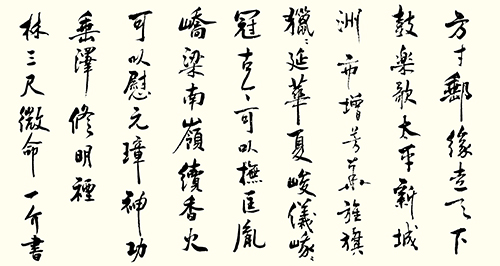 方寸郵緣走天下
鼓楽歌太平新城
洲市增芳旌旗
獵々延華夏峻儀峨々
冠古今可以撫匡胤
嶠梁南嶺續香火
可以慰元璋神功
垂澤修明禋
林三尺微命一介書